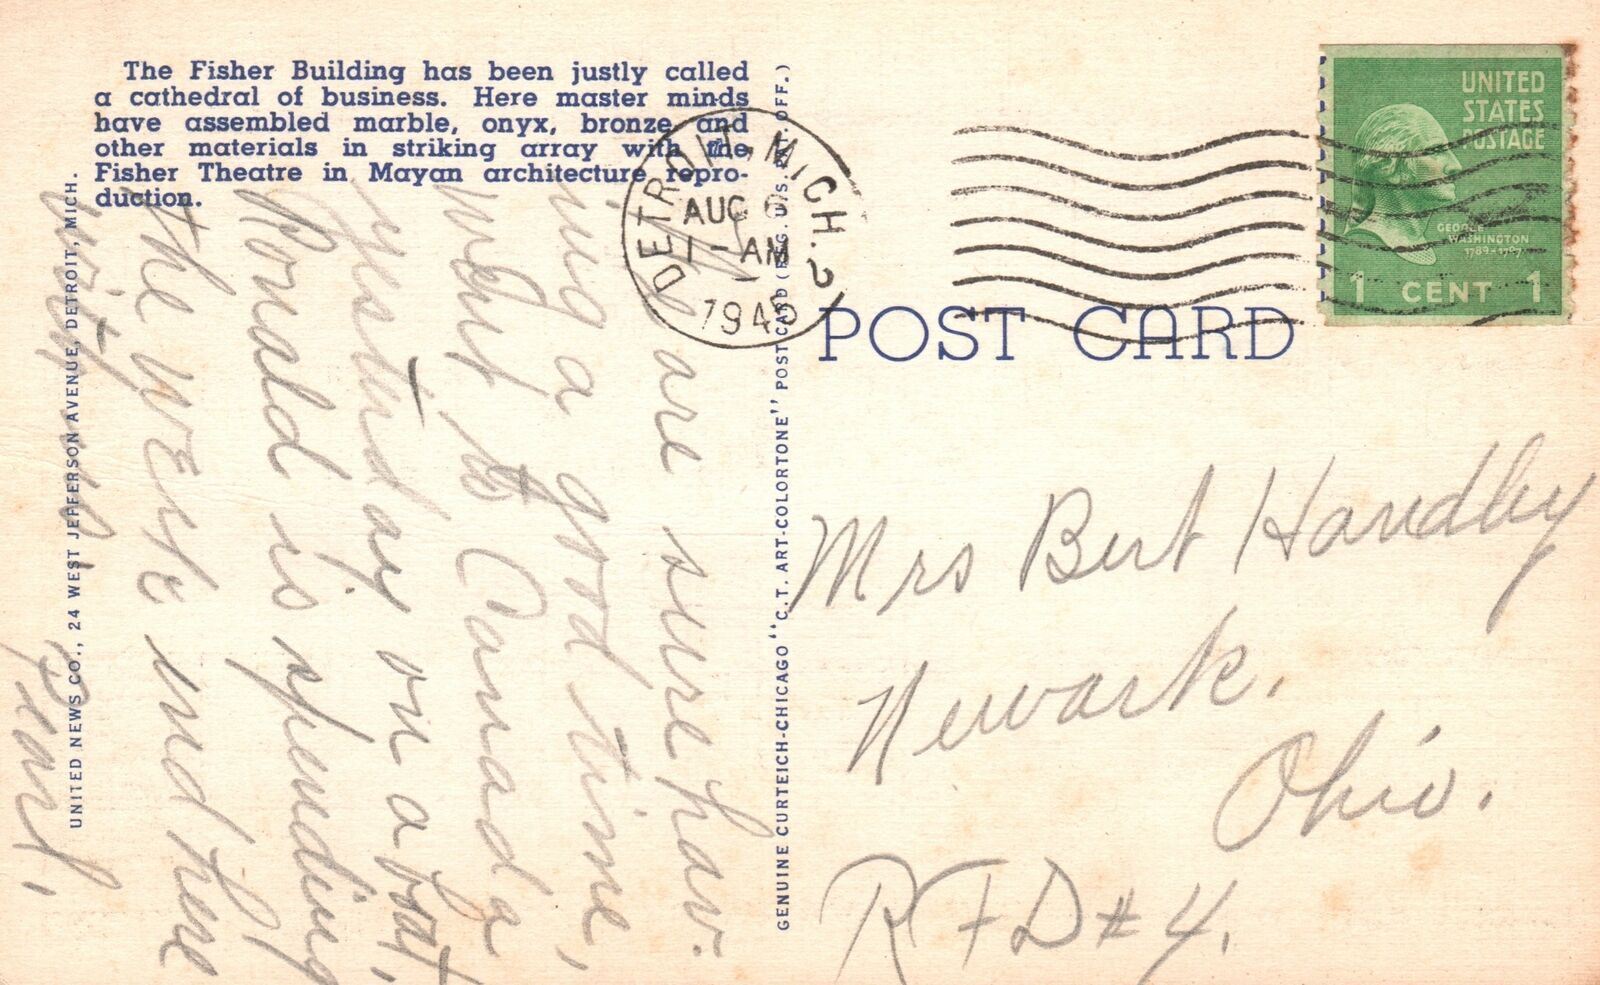 The Fisher Building has been justly called
a cathedral of business. Here master minds
have assembled marble, onyx, bronze and
other materials in striking array with the
Fisher Theatre in Mayan architecture repro-
duction.
UNITED NEWS CO., 24 WEST JEFFERSON AVENUE, DETROIT, MICH.
We are sure hav-
ing a good time,
went to Canada
yesterday on a boat,
Ronald is spending
the week end here
with us.
Pearl.
GENUINE CURTEICH-CHICAGO "C.T. ART-COLORTONE" POST CARD (REG. U.S. PAT. OFF.)
DETROIT, MICH. 2
AUG 6
1 - AM
1945
UNITED
STATES
POSTAGE
GEORGE
WASHINGTON
1789-1797
1 CENT 1
POST CARD
Mrs Bert Handley
Newark.
Ohio.
RFD #4.